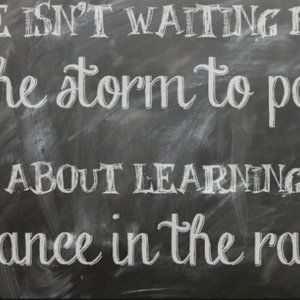 E ISN'T WAITING F
he storm to pa
ABOUT LEARNING
ance in the ra